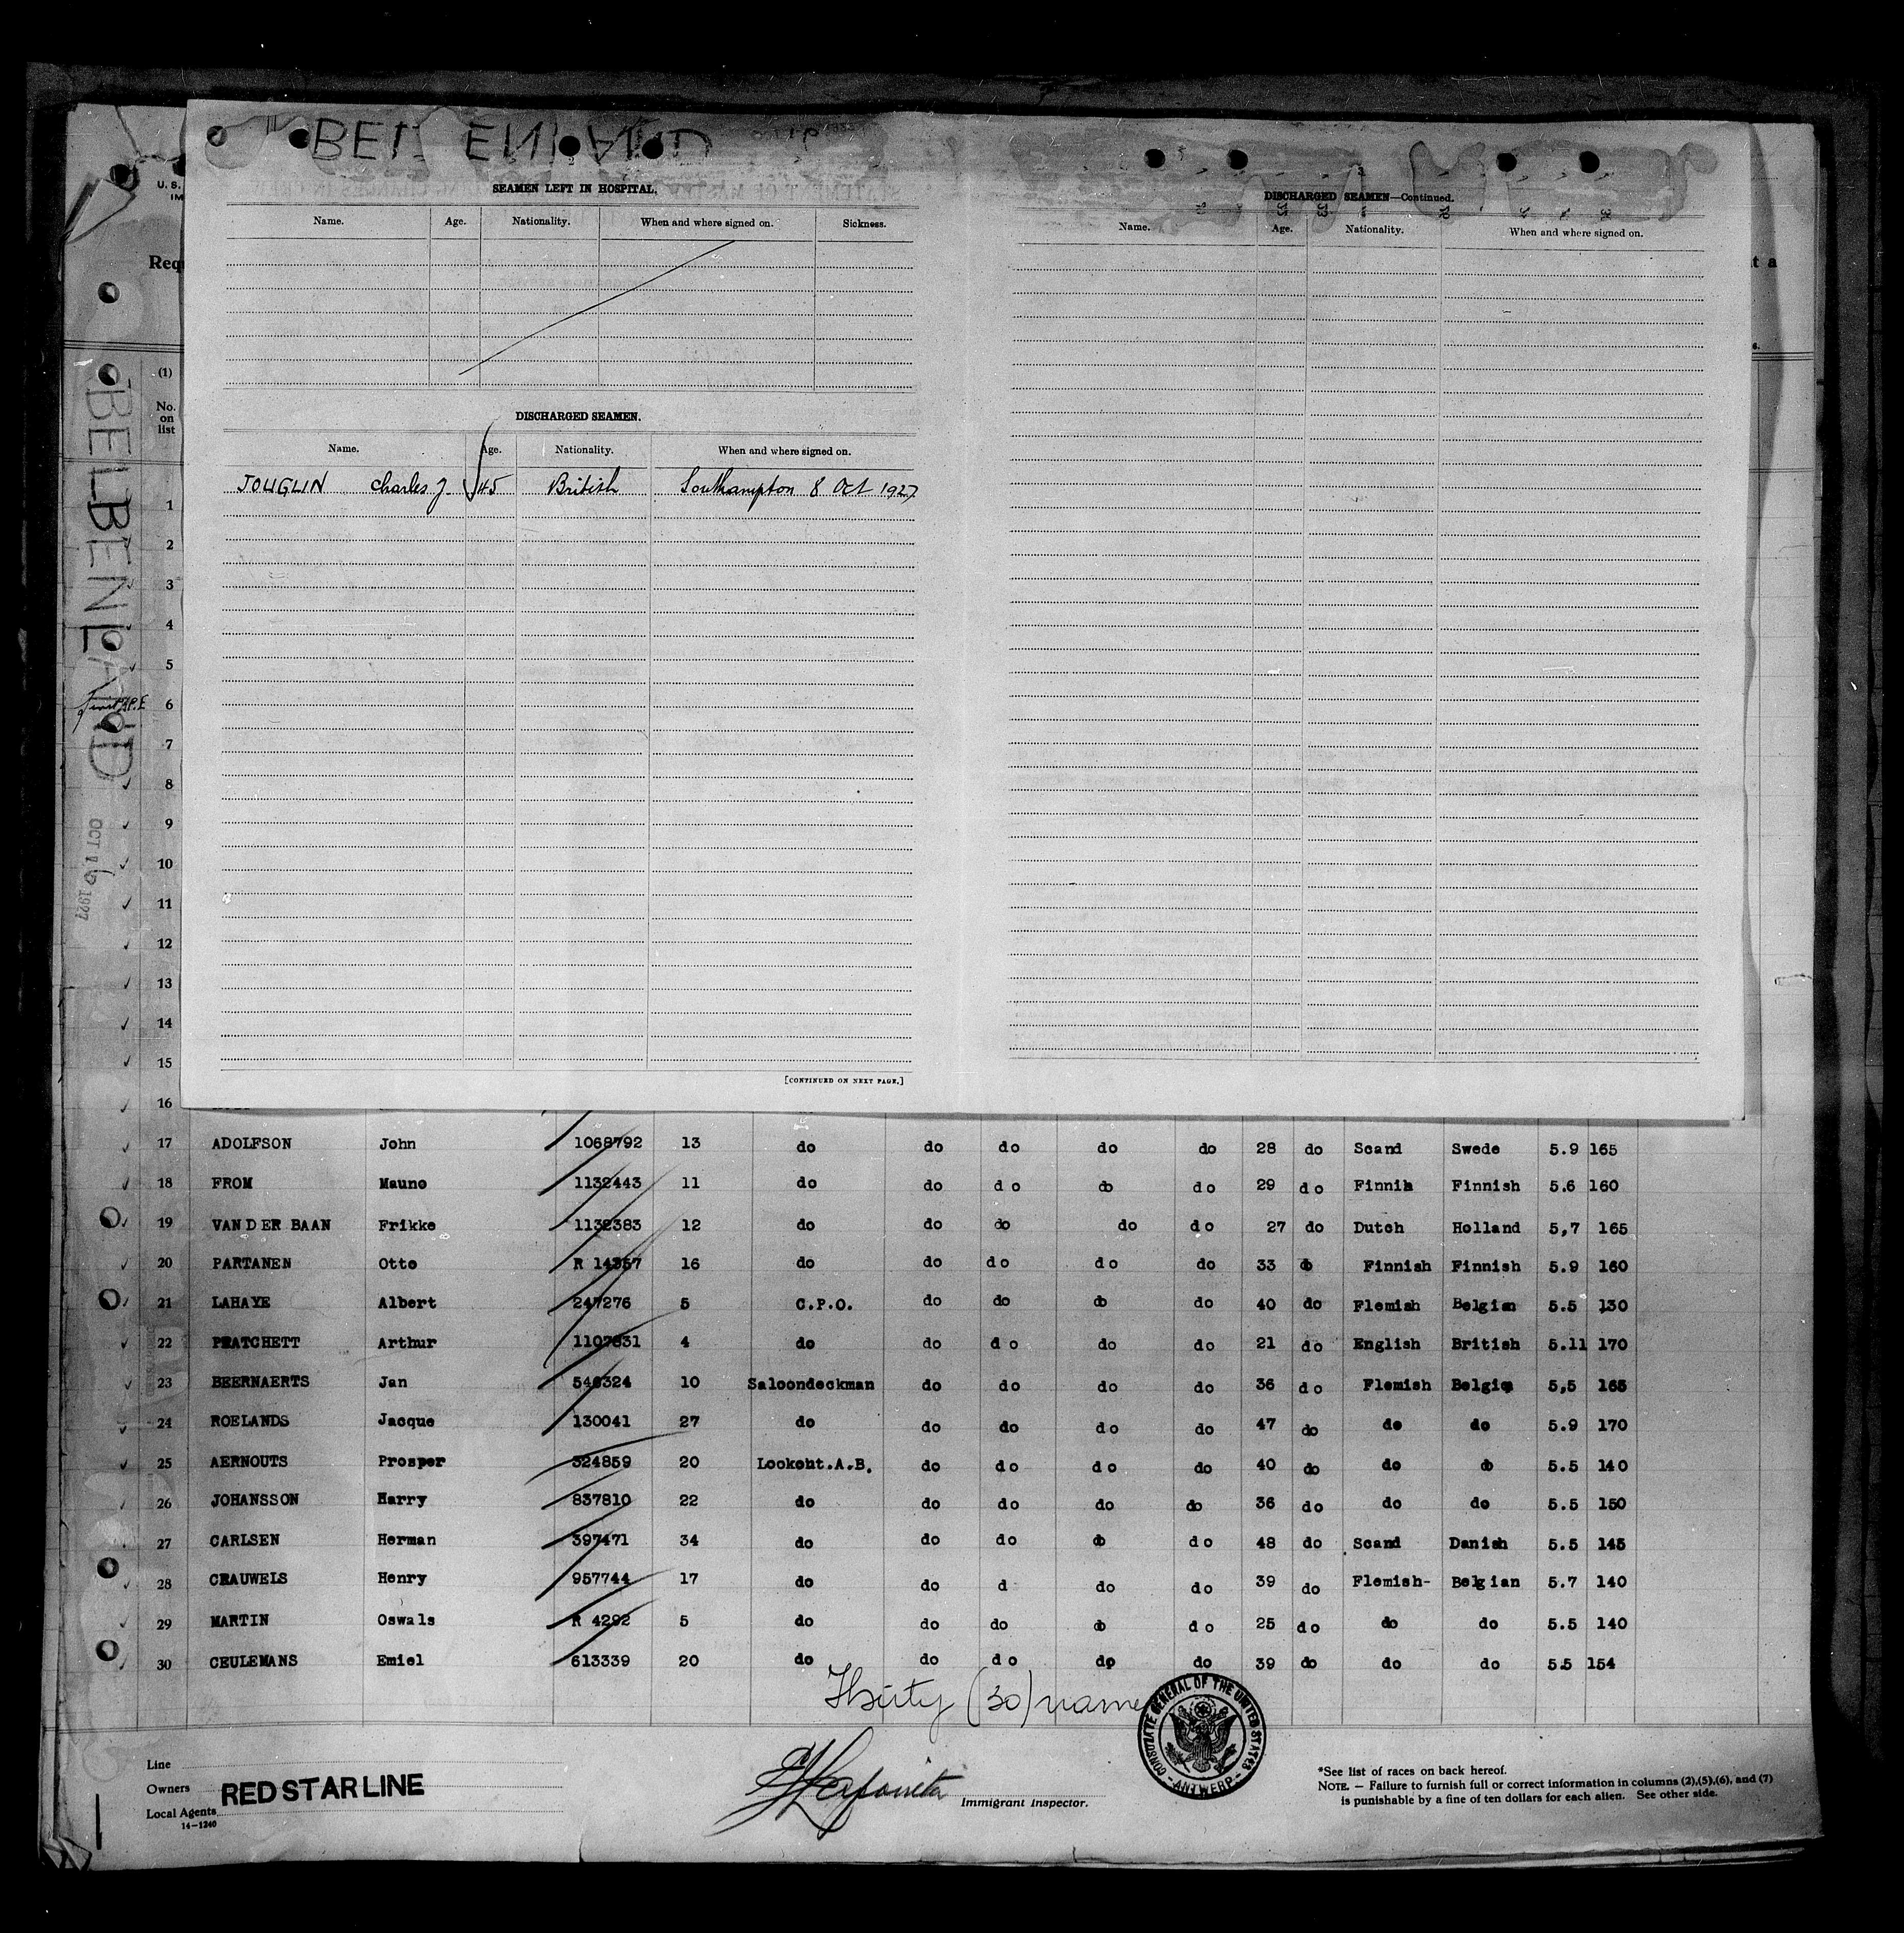 BELGENLAND
SEAMEN LEFT IN HOSPITAL.
Name. Age. Nationality. When and where signed on. Sickness.
DISCHARGED SEAMEN.
Name. Age. Nationality. When and where signed on.
JOUGLIN Charles J. 45 British Southampton 8 Oct 1927
[CONTINUED ON NEXT PAGE.]
DISCHARGED SEAMEN—Continued.
Name. Age. Nationality. When and where signed on.
U. S.
IM
Req
t a
s.
(1)
No.
on
list
BELBENLAND
OCT 16 1927
1
2
3
4
5
6
7
8
9
10
11
12
13
14
15
16
17 ADOLFSON John 1068792 13 do do do do do 28 do Scand Swede 5.9 165
18 FROM Mauno 1132443 11 do do do do do 29 do Finnih Finnish 5.6 160
19 VAN DER BAAN Frikke 1132383 12 do do do do do 27 do Dutch Holland 5,7 165
20 PARTANEN Otto R 14357 16 do do do do do 33 do Finnish Finnish 5.9 160
21 LAHAYE Albert 247276 5 C.P.O. do do do do 40 do Flemish Belgian 5.5 130
22 PRATCHETT Arthur 1107831 4 do do do do do 21 do English British 5.11 170
23 BEERNAERTS Jan 546324 10 Saloondeckman do do do do 36 do Flemish Belgian 5,5 165
24 ROELANDS Jacque 130041 27 do do do do do 47 do do do 5.9 170
25 AERNOUTS Prosper 324859 20 Lookout.A.B. do do do do 40 do do do 5.5 140
26 JOHANSSON Harry 837810 22 do do do do do 36 do do do 5.5 150
27 CARLSEN Herman 397471 34 do do do do do 48 do Scand Danish 5.5 145
28 CRAUWELS Henry 957744 17 do do d do do 39 do Flemish- Belgian 5.7 140
29 MARTIN Oswals R 4292 5 do do do do do 25 do do do 5.5 140
30 CEULEMANS Emiel 613339 20 do do do do do 39 do do do 5.5 154
Thirty (30) name
CONSULATE GENERAL OF THE UNITED STATES - ANTWERP -
Line
Owners RED STAR LINE
Local Agents
14-1240
Immigrant Inspector.
*See list of races on back hereof.
NOTE. — Failure to furnish full or correct information in columns (2),(5),(6), and (7)
is punishable by a fine of ten dollars for each alien. See other side.